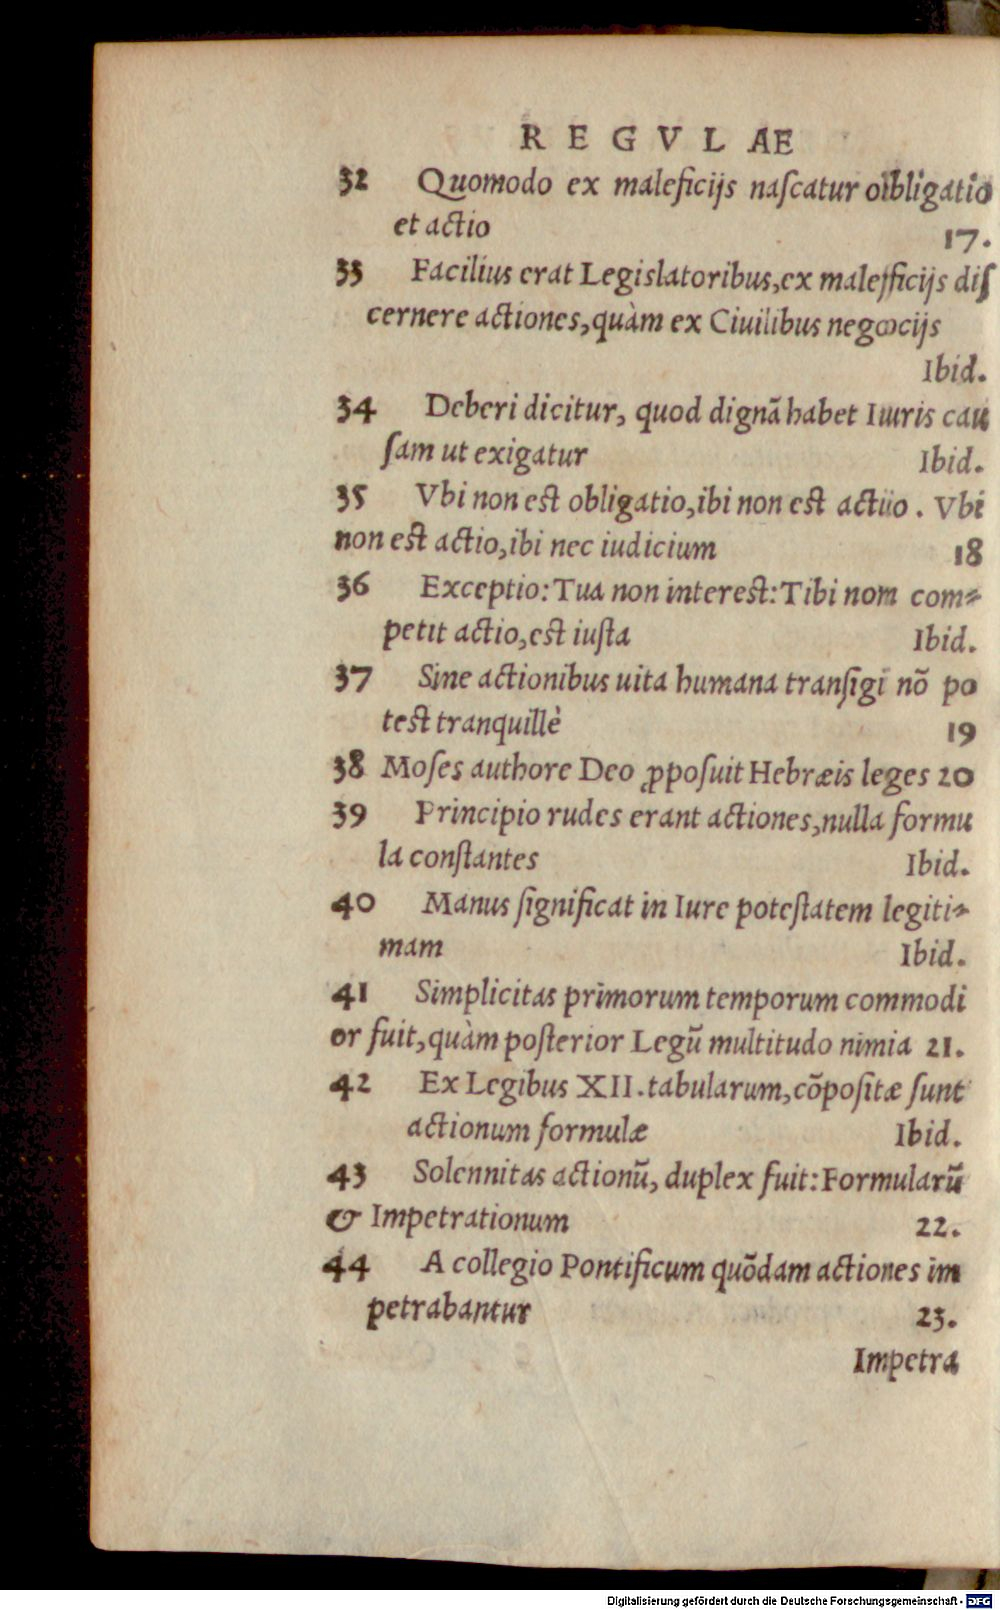 REGVLAE
32 Quomodo ex maleficijs naſcatur obligatio
et actio 17.
33 Facilius erat Legislatoribus,ex maleficijs diſ
cernere actiones,quàm ex Ciuilibus negocijs
Ibid.
34 Deberi dicitur, quod dignā habet Iuris cau
ſam ut exigatur Ibid.
35 Vbi non est obligatio,ibi non est actio. Vbi
non est actio,ibi nec iudicium 18
36 Exceptio:Tua non interest:Tibi non com-
petit actio,est iuſta Ibid.
37 Sine actionibus uita humana tranſigi nō po
test tranquillè 19
38 Moſes authore Deo ꝓpoſuit Hebræis leges 20
39 Principio rudes erant actiones,nulla formu
la conſtantes Ibid.
40 Manus ſignificat in Iure poteſtatem legiti-
mam Ibid.
41 Simplicitas primorum temporum commodi
or fuit,quàm poſterior Legū multitudo nimia 21.
42 Ex Legibus XII.tabularum,cōpoſitæ ſunt
actionum formulæ Ibid.
43 Solennitas actionū, duplex fuit:Formularū
& Impetrationum 22.
44 A collegio Pontificum quōdam actiones im
petrabantur 23.
Impetra
Digitalisierung gefördert durch die Deutsche Forschungsgemeinschaft - DFG